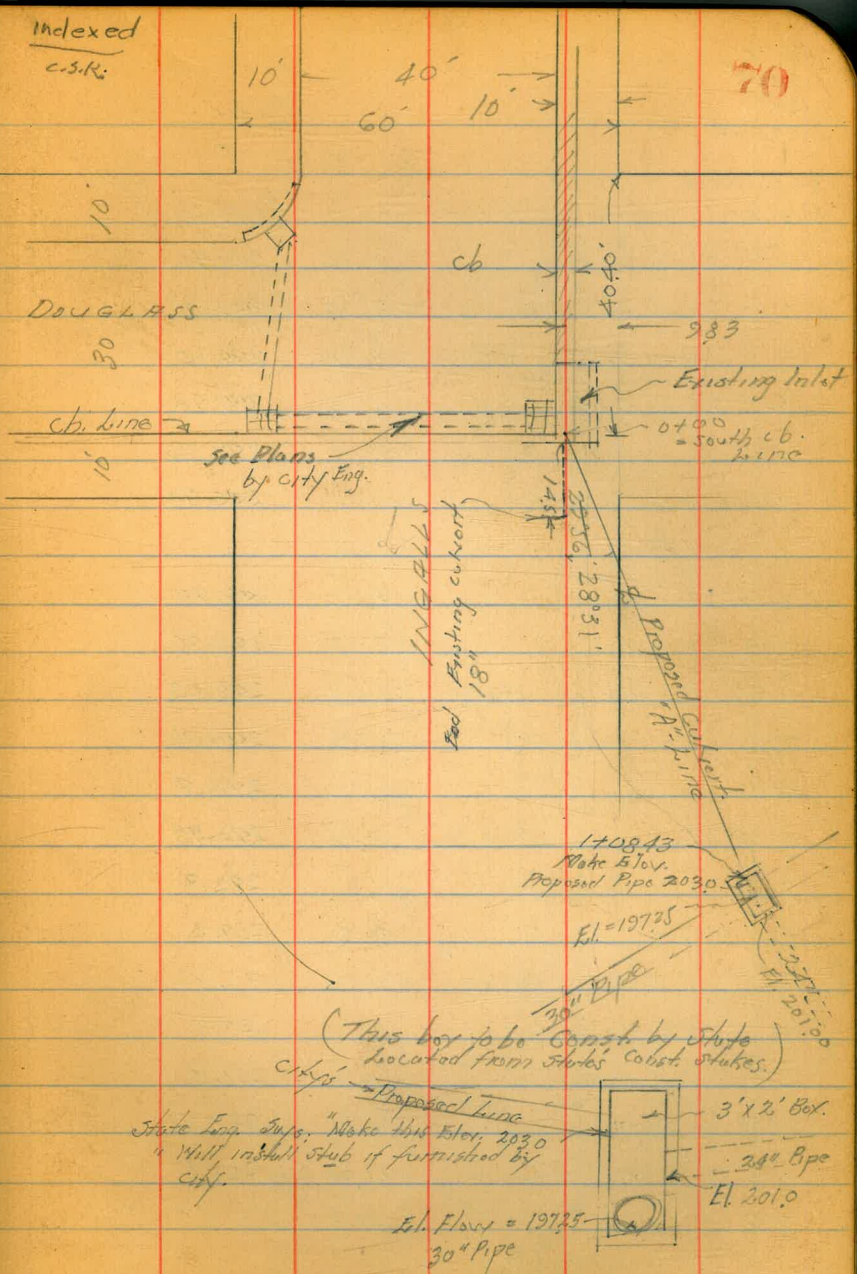 Indexed
C.S.K.
70
10'
40'
60'
10'
10
cb
40.40'
DOUGLASS
30
9.83
Existing Inlet
Cb. Line
0+00
= South cb.
Line
10'
See Plans
by City Eng.
14.5'
28°31'
INGALLS
End Existing Culvert
18"
Proposed Culvert
"A"-Line
1+08.43
Make Elev.
Proposed Pipe 203.0
El. = 197.25
30" Pipe
El. 201.00
(This box to be Const. by State
Located from State's Const. stakes.)
City's
Proposed Line
3' x 2' Box.
State Eng. Says. "Make this Elev. 203.0
" Will install stub if furnished by
City.
24" Pipe
El. 201.0
El. Flow = 197.25
30" Pipe